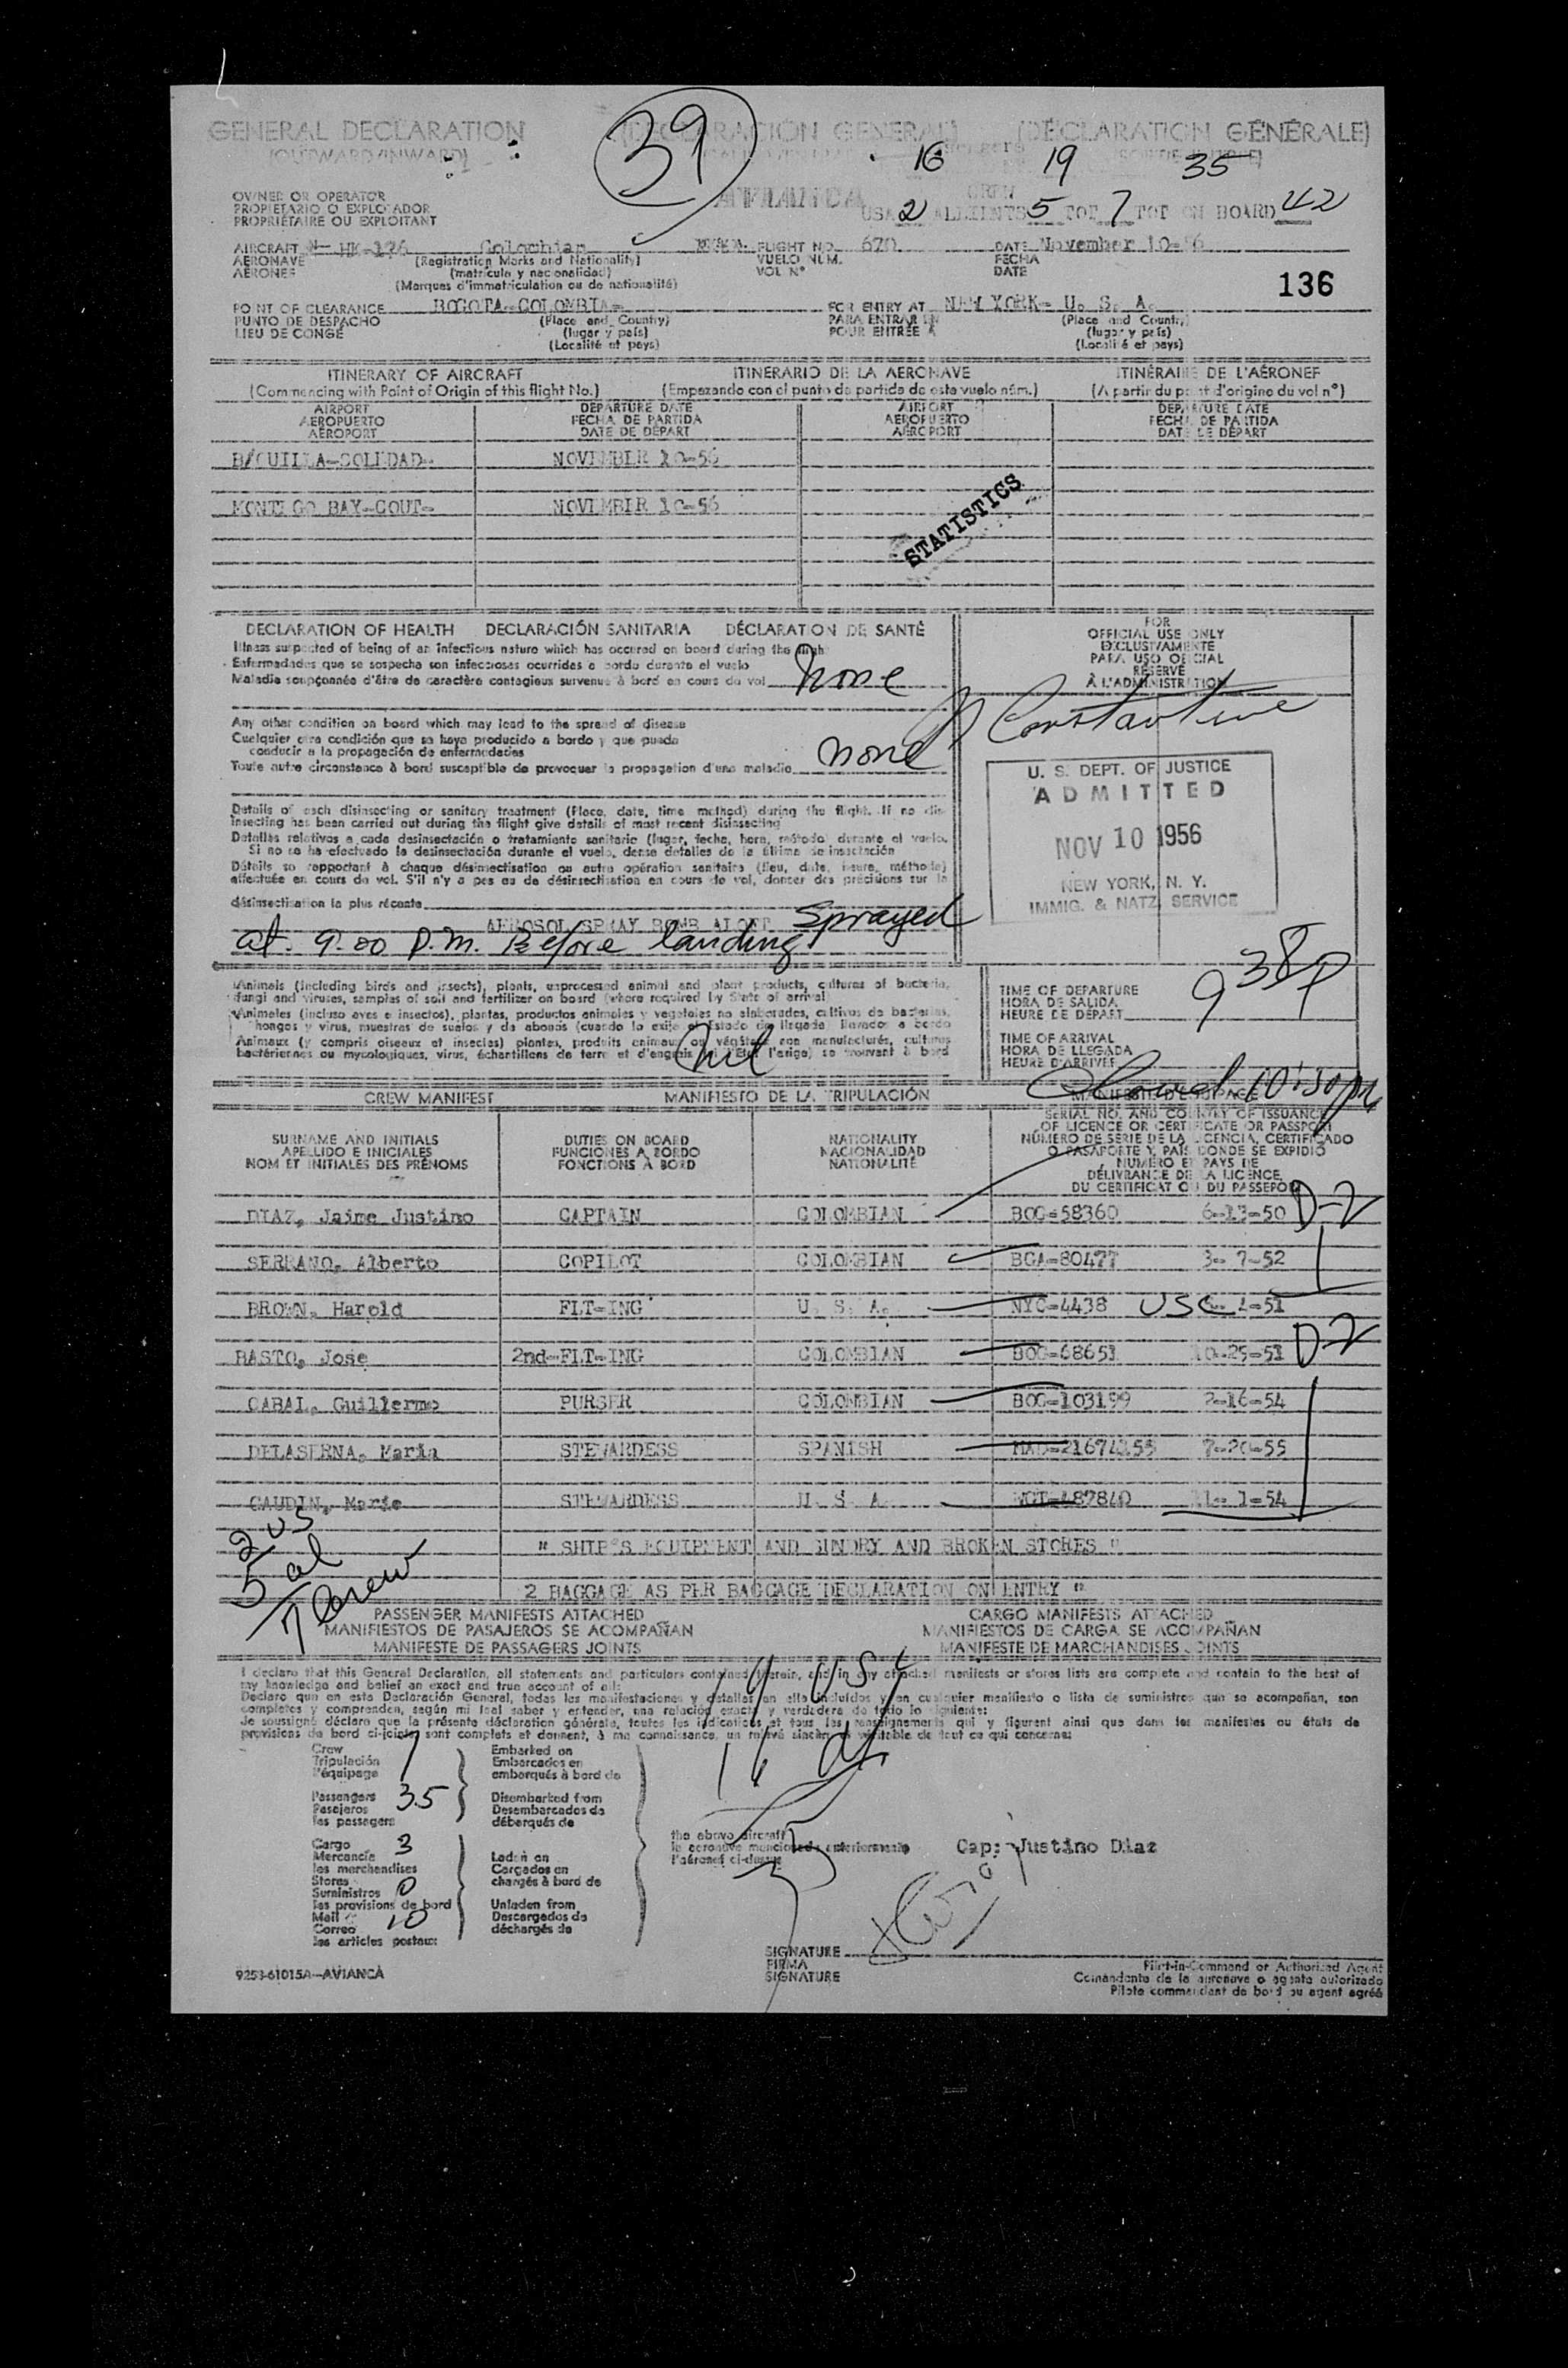 GENERAL DECLARATION (DECLARACIÓN GENERAL) (DÉCLARATION GÉNÉRALE)
(OUTWARD/INWARD)
39
16 19 35
OWNER OR OPERATOR
PROPIETARIO O EXPLOTADOR
PROPRIÉTAIRE OU EXPLOITANT
USA 2 5 TOT 7 TOT ON BOARD 42
AIRCRAFT HK-176 Colombian FLIGHT NO. 670 DATE November 10-56
AERONAVE (Registration Marks and Nationality) VUELO NÚM. FECHA
AÉRONEF (matrícula y nacionalidad) VOL Nº DATE
(Marques d'immatriculation ou de nationalité)
136
POINT OF CLEARANCE BOGOTA-COLOMBIA- FOR ENTRY AT NEW YORK- U. S. A.
PUNTO DE DESPACHO (Place and Country) PARA ENTRAR EN (Place and Country)
LIEU DE CONGÉ (lugar y país) POUR ENTRÉE À (lugar y país)
(Localité et pays) (Localité et pays)
ITINERARY OF AIRCRAFT ITINERARIO DE LA AERONAVE ITINÉRAIRE DE L'AÉRONEF
(Commencing with Point of Origin of this flight No.) (Empezando con el punto de partida de este vuelo núm.) (A partir du point d'origine du vol nº)
AIRPORT DEPARTURE DATE AIRPORT DEPARTURE DATE
AEROPUERTO FECHA DE PARTIDA AEROPUERTO FECHA DE PARTIDA
AÉROPORT DATE DE DÉPART AÉROPORT DATE DE DÉPART
B/QUILLA-SOLEDAD- NOVEMBER 10-56
MONTEGO BAY-GOUT- NOVEMBER 10-56
STATISTICS
DECLARATION OF HEALTH DECLARACIÓN SANITARIA DÉCLARATION DE SANTÉ
Illness suspected of being of an infectious nature which has occured on board during the flight
Enfermedades que se sospecha son infecciosas ocurridas a bordo durante el vuelo
Maladie soupçonnée d'être de caractère contagieux survenue à bord en cours du vol None
Any other condition on board which may lead to the spread of disease
Cualquier otra condición que se haya producido a bordo y que pueda
conducir a la propagación de enfermedades
Toute autre circonstance à bord susceptible de provoquer la propagation d'une maladie none
Details of each disinsecting or sanitary treatment (Place, date, time method) during the flight. If no dis-
insecting has been carried out during the flight give details of most recent disinsecting
Detalles relativos a cada desinsectación o tratamiento sanitario (lugar, fecha, hora, método) durante el vuelo.
Si no se ha efectuado la desinsectación durante el vuelo, dense detalles de la última desinsectación
Détails se rapportant à chaque désinsectisation ou autre opération sanitaire (lieu, date, heure, méthode)
effectuée en cours de vol. S'il n'y a pas eu de désinsectisation en cours de vol, donner des précisions sur la
désinsectisation la plus récente
AEROSOL SPRAY BOMB ALOFT Sprayed
at 9.00 P.M. Before landing
FOR
OFFICIAL USE ONLY
EXCLUSIVAMENTE
PARA USO OFICIAL
RÉSERVÉ
À L'ADMINISTRATION
Constantine
U. S. DEPT. OF JUSTICE
ADMITTED
NOV 10 1956
NEW YORK, N. Y.
IMMIG. & NATZ. SERVICE
Animals (including birds and insects), plants, unprocessed animal and plant products, cultures of bacteria,
fungi and viruses, samples of soil and fertilizer on board (where required by State of arrival)
Animales (incluso aves e insectos), plantas, productos animales y vegetales no elaborados, cultivos de bacterias,
hongos y virus, muestras de suelos y de abonos (cuando lo exija el Estado de llegada) llevados a bordo
Animaux (y compris oiseaux et insectes) plantes, produits animaux ou végétaux non manufacturés, cultures
bactériennes ou mycologiques, virus, échantillons de terre et d'engrais (si l'État l'exige) se trouvant à bord
Nil
TIME OF DEPARTURE
HORA DE SALIDA
HEURE DE DÉPART
9 38P
TIME OF ARRIVAL
HORA DE LLEGADA
HEURE D'ARRIVÉE
10:30pm
CREW MANIFEST MANIFIESTO DE LA TRIPULACIÓN MANIFESTE D'ÉQUIPAGE
SURNAME AND INITIALS DUTIES ON BOARD NATIONALITY SERIAL NO. AND COUNTRY OF ISSUANCE
APELLIDO E INICIALES FUNCIONES A BORDO NACIONALIDAD OF LICENCE OR CERTIFICATE OR PASSPORT
NOM ET INITIALES DES PRÉNOMS FONCTIONS À BORD NATIONALITÉ NÚMERO DE SERIE DE LA LICENCIA, CERTIFICADO
O PASAPORTE Y PAÍS DONDE SE EXPIDIÓ
NUMÉRO ET PAYS DE
DÉLIVRANCE DE LA LICENCE,
DU CERTIFICAT OU DU PASSEPORT
DIAZ, Jaime Justino CAPTAIN COLOMBIAN BOG-58360 6-13-50 D-2
SERRANO, Alberto COPILOT COLOMBIAN BGA-80477 3- 7-52
BROWN, Harold FLT-ING U. S. A. NYC-4438 USC -51
BASTO, Jose 2nd-FLT-ING COLOMBIAN BOG-68651 10-25-51 D-2
CABAL, Guillermo PURSER COLOMBIAN BOG-103199 2-16-54
DELASERNA, Maria STEWARDESS SPANISH 7-20-55
GAUDIN, Marie STEWARDESS U. S. A. 11- 1-54
2 US
5 al
7 Crew
" SHIP'S EQUIPMENT AND SUNDRY AND BROKEN STORES "
2 BAGGAGE AS PER BAGGAGE DECLARATION ON ENTRY "
PASSENGER MANIFESTS ATTACHED CARGO MANIFESTS ATTACHED
MANIFIESTOS DE PASAJEROS SE ACOMPAÑAN MANIFIESTOS DE CARGA SE ACOMPAÑAN
MANIFESTE DE PASSAGERS JOINTS MANIFESTE DE MARCHANDISES JOINTS
I declare that this General Declaration, all statements and particulars contained therein, and in any attached manifests or stores lists are complete and contain to the best of
my knowledge and belief an exact and true account of all:
Declaro que en esta Declaración General, todas las manifestaciones y detalles en ella incluídos y en cualquier manifiesto o lista de suministros que se acompañan, son
completos y comprenden, según mi leal saber y entender, una relación exacta y verdadera de todo lo siguiente:
Je soussigné déclare que la présente déclaration générale, toutes les indications et tous les renseignements qui y figurent ainsi que dans les manifestes ou états de
provisions de bord ci-joints, sont complets et donnent, à ma connaissance, un relevé sincère et véritable de tout ce qui concerne:
19 USC
16 al
35
Crew 7 Embarked on
Tripulación Embarcados en
l'équipage embarqués à bord de
Passengers 35 Disembarked from
Pasajeros Desembarcados de
les passagers débarqués de
Cargo 3
Mercancía Laden on
les merchandises Cargados en
Stores chargés à bord de
Suministros 0
les provisions de bord Unladen from
Mail 10 Descargados de
Correo déchargés de
les articles postaux
the above aircraft
la aeronave mencionada anteriormente
l'aéronef ci-dessus
Cap: Justino Diaz
SIGNATURE
FIRMA
SIGNATURE
Pilot-in-Command or Authorized Agent
Comandante de la aeronave o agente autorizado
Pilote commandant de bord ou agent agréé
9253-61015A-AVIANCA